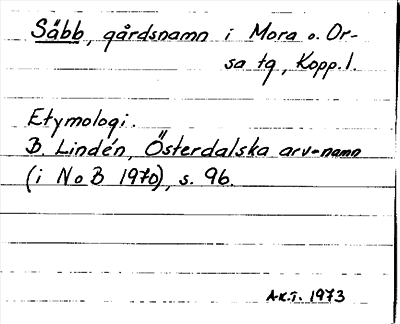 Säbb, gårdsnamn i Mora o. Or-
sa tg, Kopp.l.
Etymologi.
B. Lindén, Österdalska arv-namn
(i NoB 1970), s. 96.
A.K.T. 1973